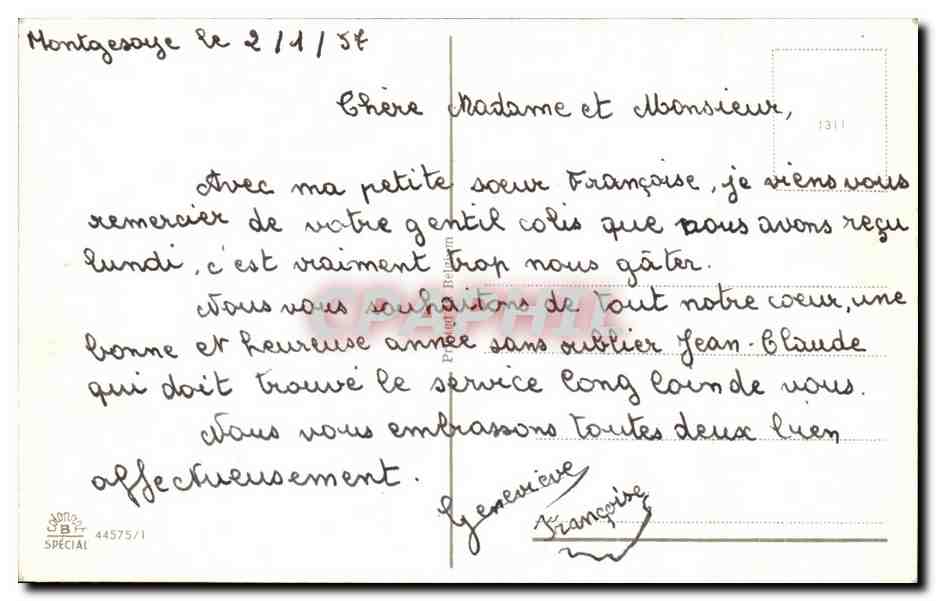 Montgesoye le 2/1/57
Chère Madame et Monsieur,
1311
Avec ma petite soeur Françoise, je viens vous
remercier de votre gentil colis que nous avons reçu
lundi, c'est vraiment trop nous gâter.
Nous vous souhaitons de tout notre coeur, une
bonne et heureuse année sans oublier Jean-Claude
qui doit trouvé le service long loin de vous.
Nous vous embrassons toutes deux bien
affectueusement.
Geneviève
Françoise
CPAPHIL
Printed in Belgium
COLORPRINT
B
SPÉCIAL 44575/1